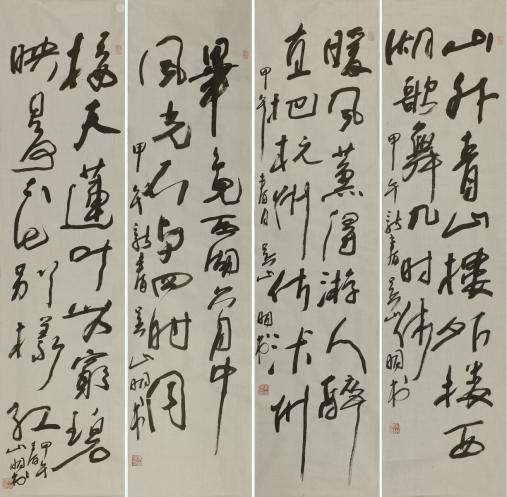 山外青山楼外楼西
湖歌舞几时休
甲午新春吴山明书
暖风薰得游人醉
直把杭州作汴州
甲午春日吴山明书
畢竟西湖六月中
风光不与四时同
甲午新春吴山明书
接天蓮叶无窮碧
映日荷花别樣红
甲午
春
山明书